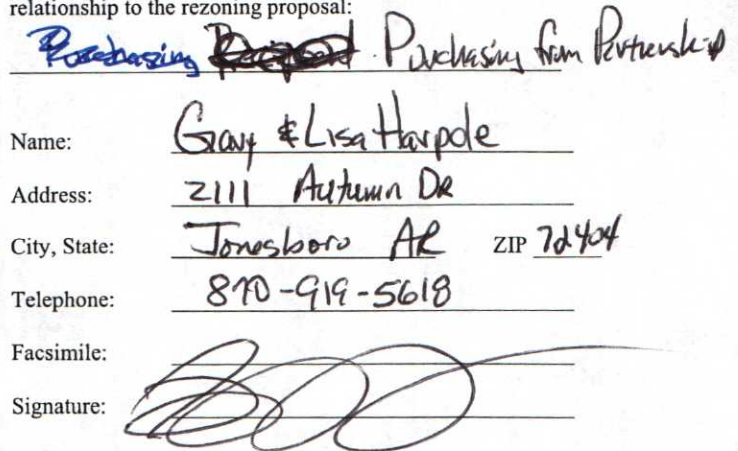 relationship to the rezoning proposal:
Purchasing Purchasing from Partnership
Name: Gary & Lisa Harpole
Address: 2111 Autumn DR
City, State: Jonesboro AR ZIP 72404
Telephone: 870-919-5618
Facsimile:
Signature: